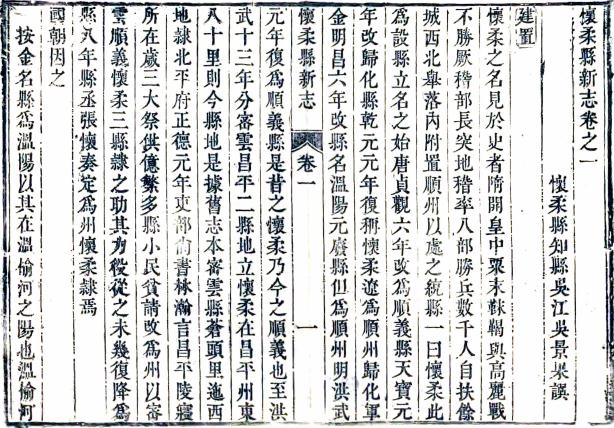 懷柔縣新志卷之一
懷柔縣知縣吳江吳景杲譔
建置
懷柔之名見於史者隋開皇中粟末靺鞨與高麗戰
不勝厥稽部長突地稽率八部勝兵數千人自扶餘
城西北舉落內附置順州以處之統縣一曰懷柔此
為設縣立名之始唐貞觀六年改為順義縣天寶元
年改歸化縣乾元元年復稱懷柔遼為順州歸化軍
金明昌六年改縣名溫陽元廢縣但為順州明洪武
懷柔縣新志
卷一
一
元年復為順義縣是昔之懷柔乃今之順義也至洪
武十三年分密雲昌平二縣地立懷柔在昌平州東
八十里則今縣地是據舊志本密雲縣蒼頭里迤西
地隸北平府正德元年吏部尚書林瀚言昌平陵寢
所在歲三大祭供億繁多縣小民貧請改為州以密
雲順義懷柔三縣隸之助其力役從之未幾復降為
縣八年縣丞張懷奏定為州懷柔隸焉
國朝因之
按金名縣為溫陽以其在溫榆河之陽也溫榆河